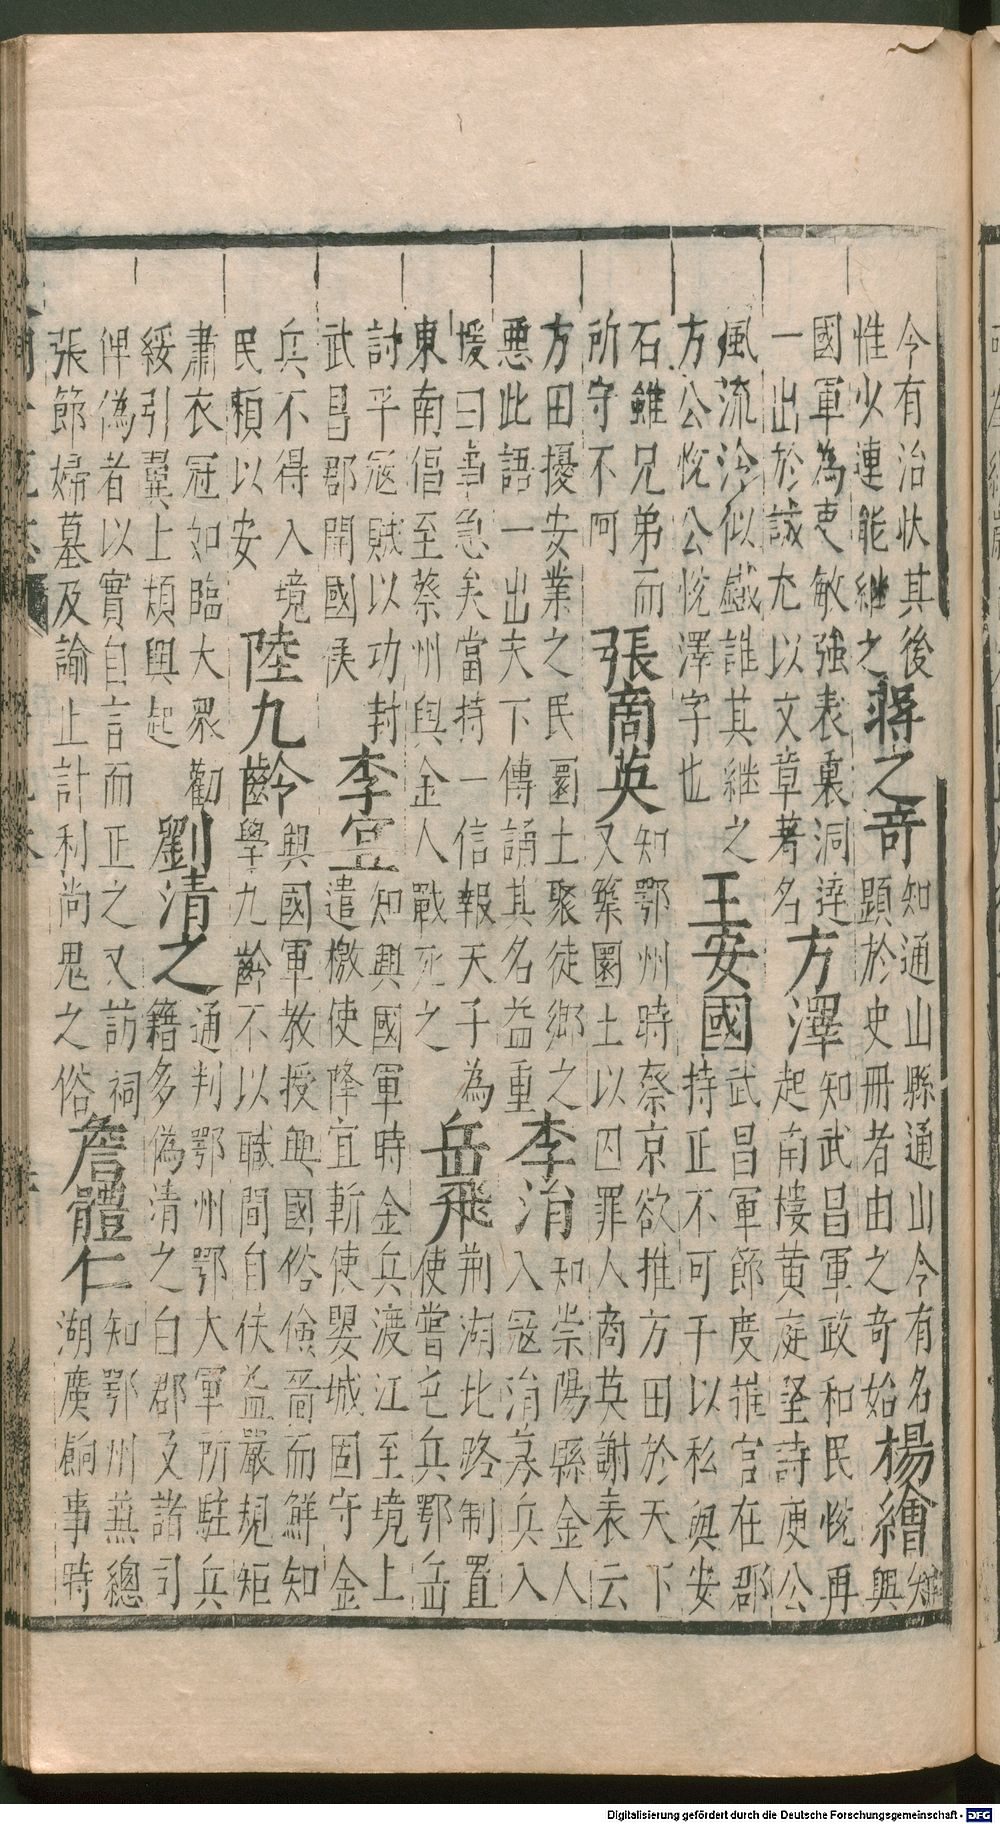 今有治狀其後
惟少連能継之
蔣之竒
知通山縣通山令有名
顯於史冊者由之竒始
楊繪
知
興
國軍為吏敏強表裏洞達
一出於誠尤以文章著名
方澤
知武昌軍政和民恱再
起南樓黄庭堅詩庾公
風流冷似鐡誰其継之
方公恱公恱澤字也
王安國
武昌軍節度推官在郡
持正不可干以私與安
石雖兄弟而
所守不阿
張商英
知鄂州時蔡京欲推方田於天下
又築圜土以囚罪人商英謝表云
方田擾安業之民圜土聚徒鄉之
惡此語一出天下傳誦其名益重
李治
知崇陽縣金人
入冦治募兵入
援曰事急矣當持一信報天子為
東南倡至蔡州與金人戰死之
岳飛
荆湖北路制置
使嘗屯兵鄂岳
討平冦賊以功封
武昌郡開國侯
李宜
知興國軍時金兵渡江至境上
遣檄使降宜斬使嬰城固守金
兵不得入境
民頼以安
陸九齡
興國軍教授興國俗儉嗇而鮮知
學九齡不以職閒自佚益嚴規矩
肅衣冠如臨大衆勸
綏引翼士頺興起
劉清之
通判鄂州鄂大軍所駐兵
籍多偽清之白郡及諸司
俾偽者以實自言而正之又訪祠
張節婦墓及諭止計利尚鬼之俗
詹體仁
知鄂州兼總
湖廣餉事時
Digitalisierung gefördert durch die Deutsche Forschungsgemeinschaft - DFG